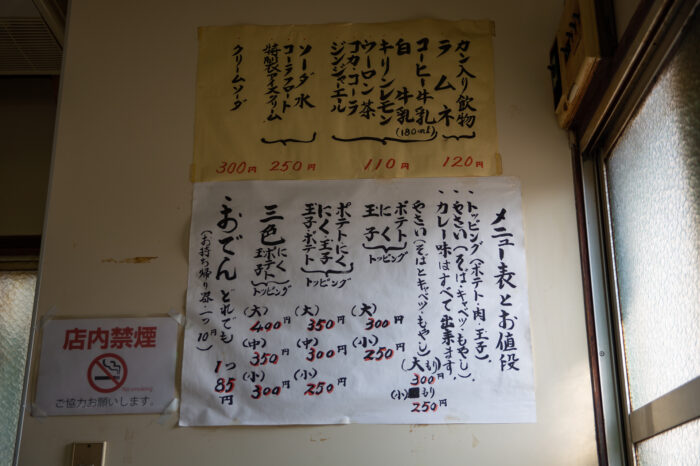 カン入り飲物
ラムネ
120円
コーヒー牛乳
白牛乳
(180ml)
キリンレモン
ウーロン茶
コカ・コーラ
ジンジャエール
110円
ソーダ水
コーラフロート
特製アイスクリーム
250円
クリームソーダ
300円
メニュー表とお値段
・トッピング(ポテト・肉・玉子)
・やさい(そば・キャベツ・もやし)
・カレー味はすべて出来ます。
やさい(そばとキャベツ・もやし)
(大)もり
300円
(小)もり
250円
ポテト
にく
玉子
トッピング
(大)
300円
(小)
250円
ポテト・にく
にく・玉子
玉子・ポテト
トッピング
(大)
350円
(中)
300円
(小)
250円
三色
にく
ポテト
玉子
トッピング
(大)
400円
(中)
350円
(小)
300円
・おでん どれでも 1つ 85円
(お持ち帰り器・一つ10円)
店内禁煙
No smoking
ご協力お願いします。